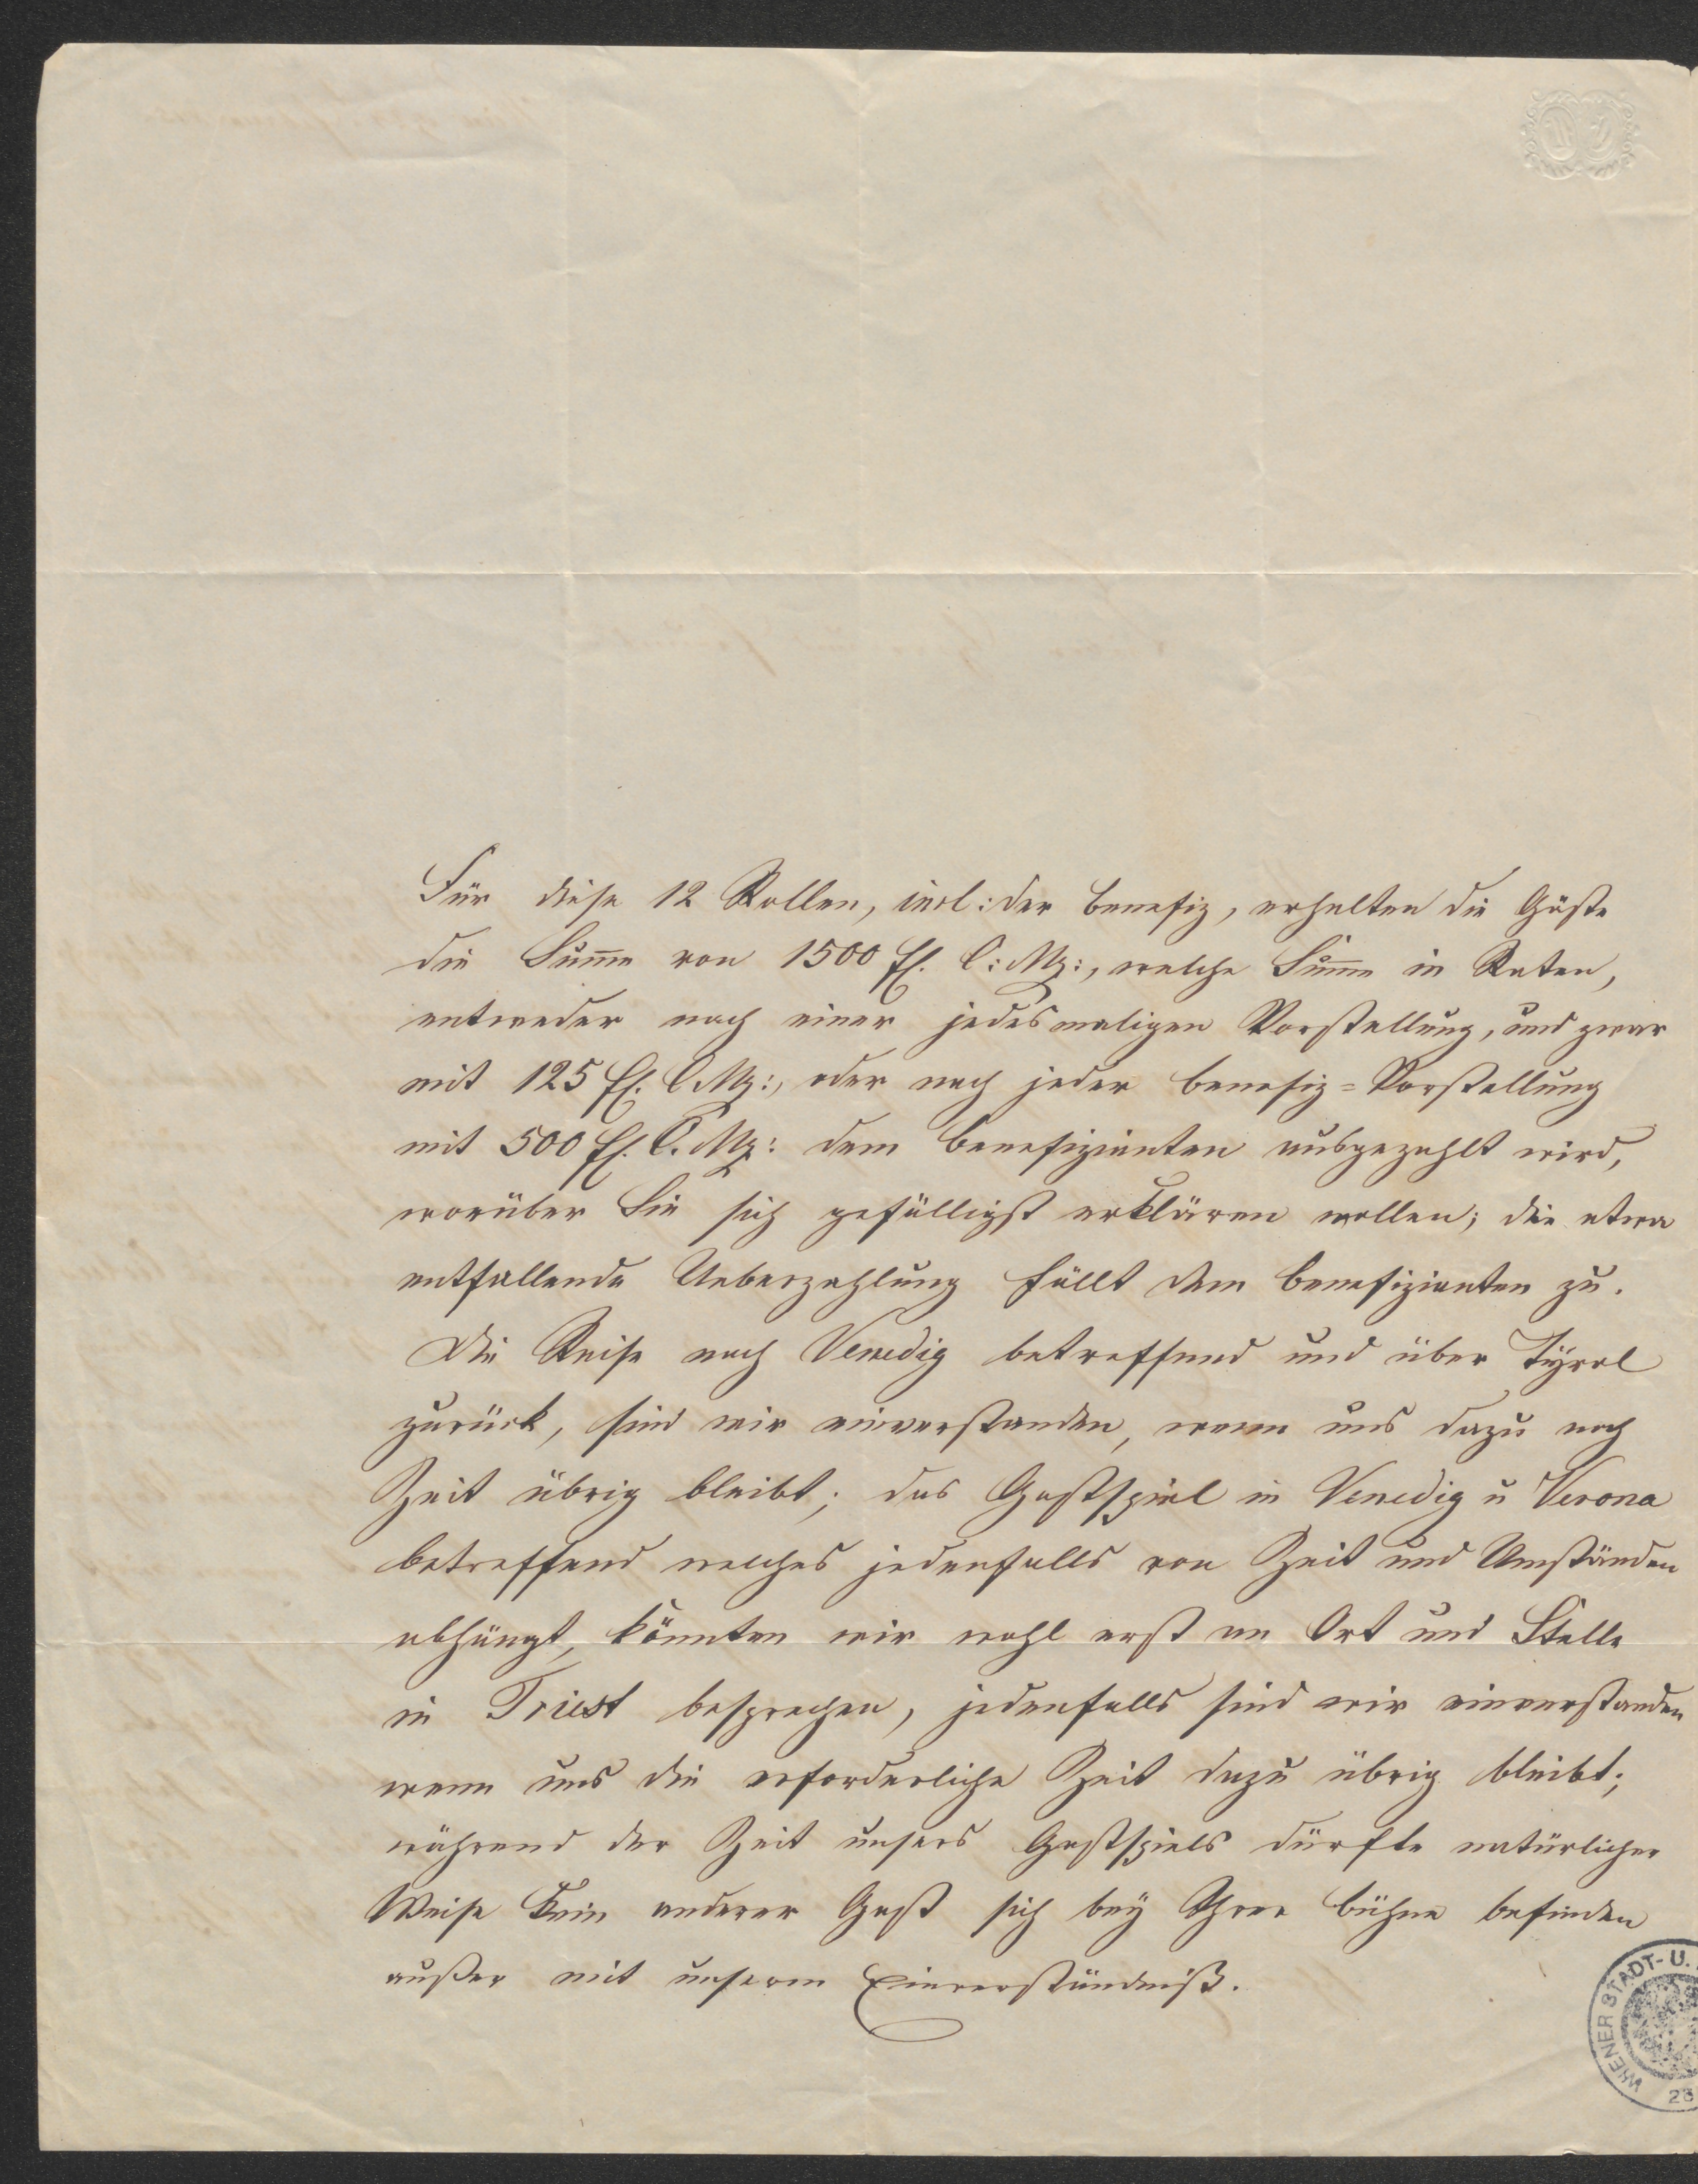 Für diese 12 Rollen, incl: der Benefiz, erhalten die Gäste
die Sum̄e von 1500 fl. C: Mz:, welche Sum̄e in Raten,
entweder nach einer jedesmaligen Vorstellung, und zwar
mit 125 fl. C Mz:, oder nach jeder Benefiz=Vorstellung
mit 500 fl. C. Mz: dem Benefizianten ausgezahlt wird,
worüber Sie sich gefälligst erklären wollen; die etwa
entfallende Ueberzahlung fällt dem Benefizianten zu.
Die Reise nach Venedig betreffend und über Tÿrol
zurück, sind wir einverstanden, wenn uns dazu noch
Zeit übrig bleibt; das Gastspiel in Venedig u Verona
betreffend welches jedenfalls von Zeit und Umständen
abhängt, könnten wir wohl erst an Ort und Stelle
in Triest besprechen, jedenfalls sind wir einverstanden
wenn uns die erforderliche Zeit dazu übrig bleibt;
während der Zeit unsers Gastspiels dürfte natürlicher
Weise kein anderer Gast sich beÿ Ihrer Bühne befinden
außer mit unserem Einverständniß.
WIENER STADT- U.